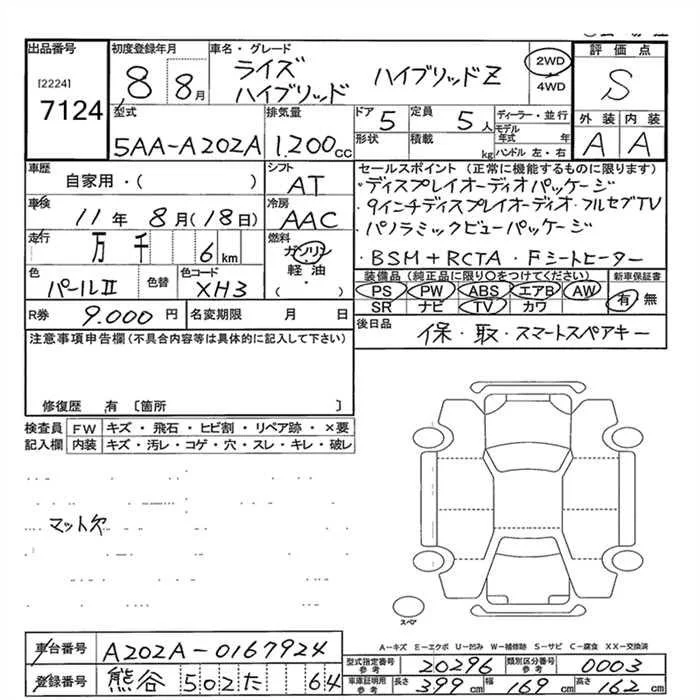 出品番号 初度登録年月 車名・グレード 評価点
[2224] 7124 8 8月 ライズ ハイブリッド ハイブリッドZ 2WD 4WD S
型式 排気量 ドア 5 定員 5人 ディーラー・並行 外装 内装
5AA-A202A 1,200cc 形状 積載 kg モデル年式 年 ハンドル 左・右 A A
車歴 シフト セールスポイント(正常に機能するものに限ります)
自家用・( ) AT ・ディスプレイオーディオパッケージ
車検 冷房 ・9インチディスプレイオーディオ・フルセグTV
11年 8月(18日) AAC ・パノラミックビューパッケージ
走行 万 千 6km 燃料 ガソリン ・BSM+RCTA ・Fシートヒーター
色 色替 色コード 軽油 装備品(純正品に限り○をつけてください) 新車保証書
パールII XH3 ・( ) PS PW ABS エアB AW 有 無
SR ナビ TV カワ
R券 9.000円 名変期限 月 日 後日品 保・取・スマートスペアキー
注意事項申告欄(不具合内容等は具体的に記入して下さい)
修復歴 有〔箇所 〕
検査員 FW キズ・飛石・ヒビ割・リペア跡・×要
記入欄 内装 キズ・汚レ・コゲ・穴・スレ・キレ・破レ
マット欠
スペア
A-キズ E-エクボ U-凹み W-補修跡 S-サビ C-腐食 XX-交換済
車台番号 A202A-0167924 型式指定番号 参考 20296 類別区分番号 参考 0003
登録番号 熊谷 502 た 64 車庫証明用 参考 長さ 399cm 幅 169cm 高さ 162cm